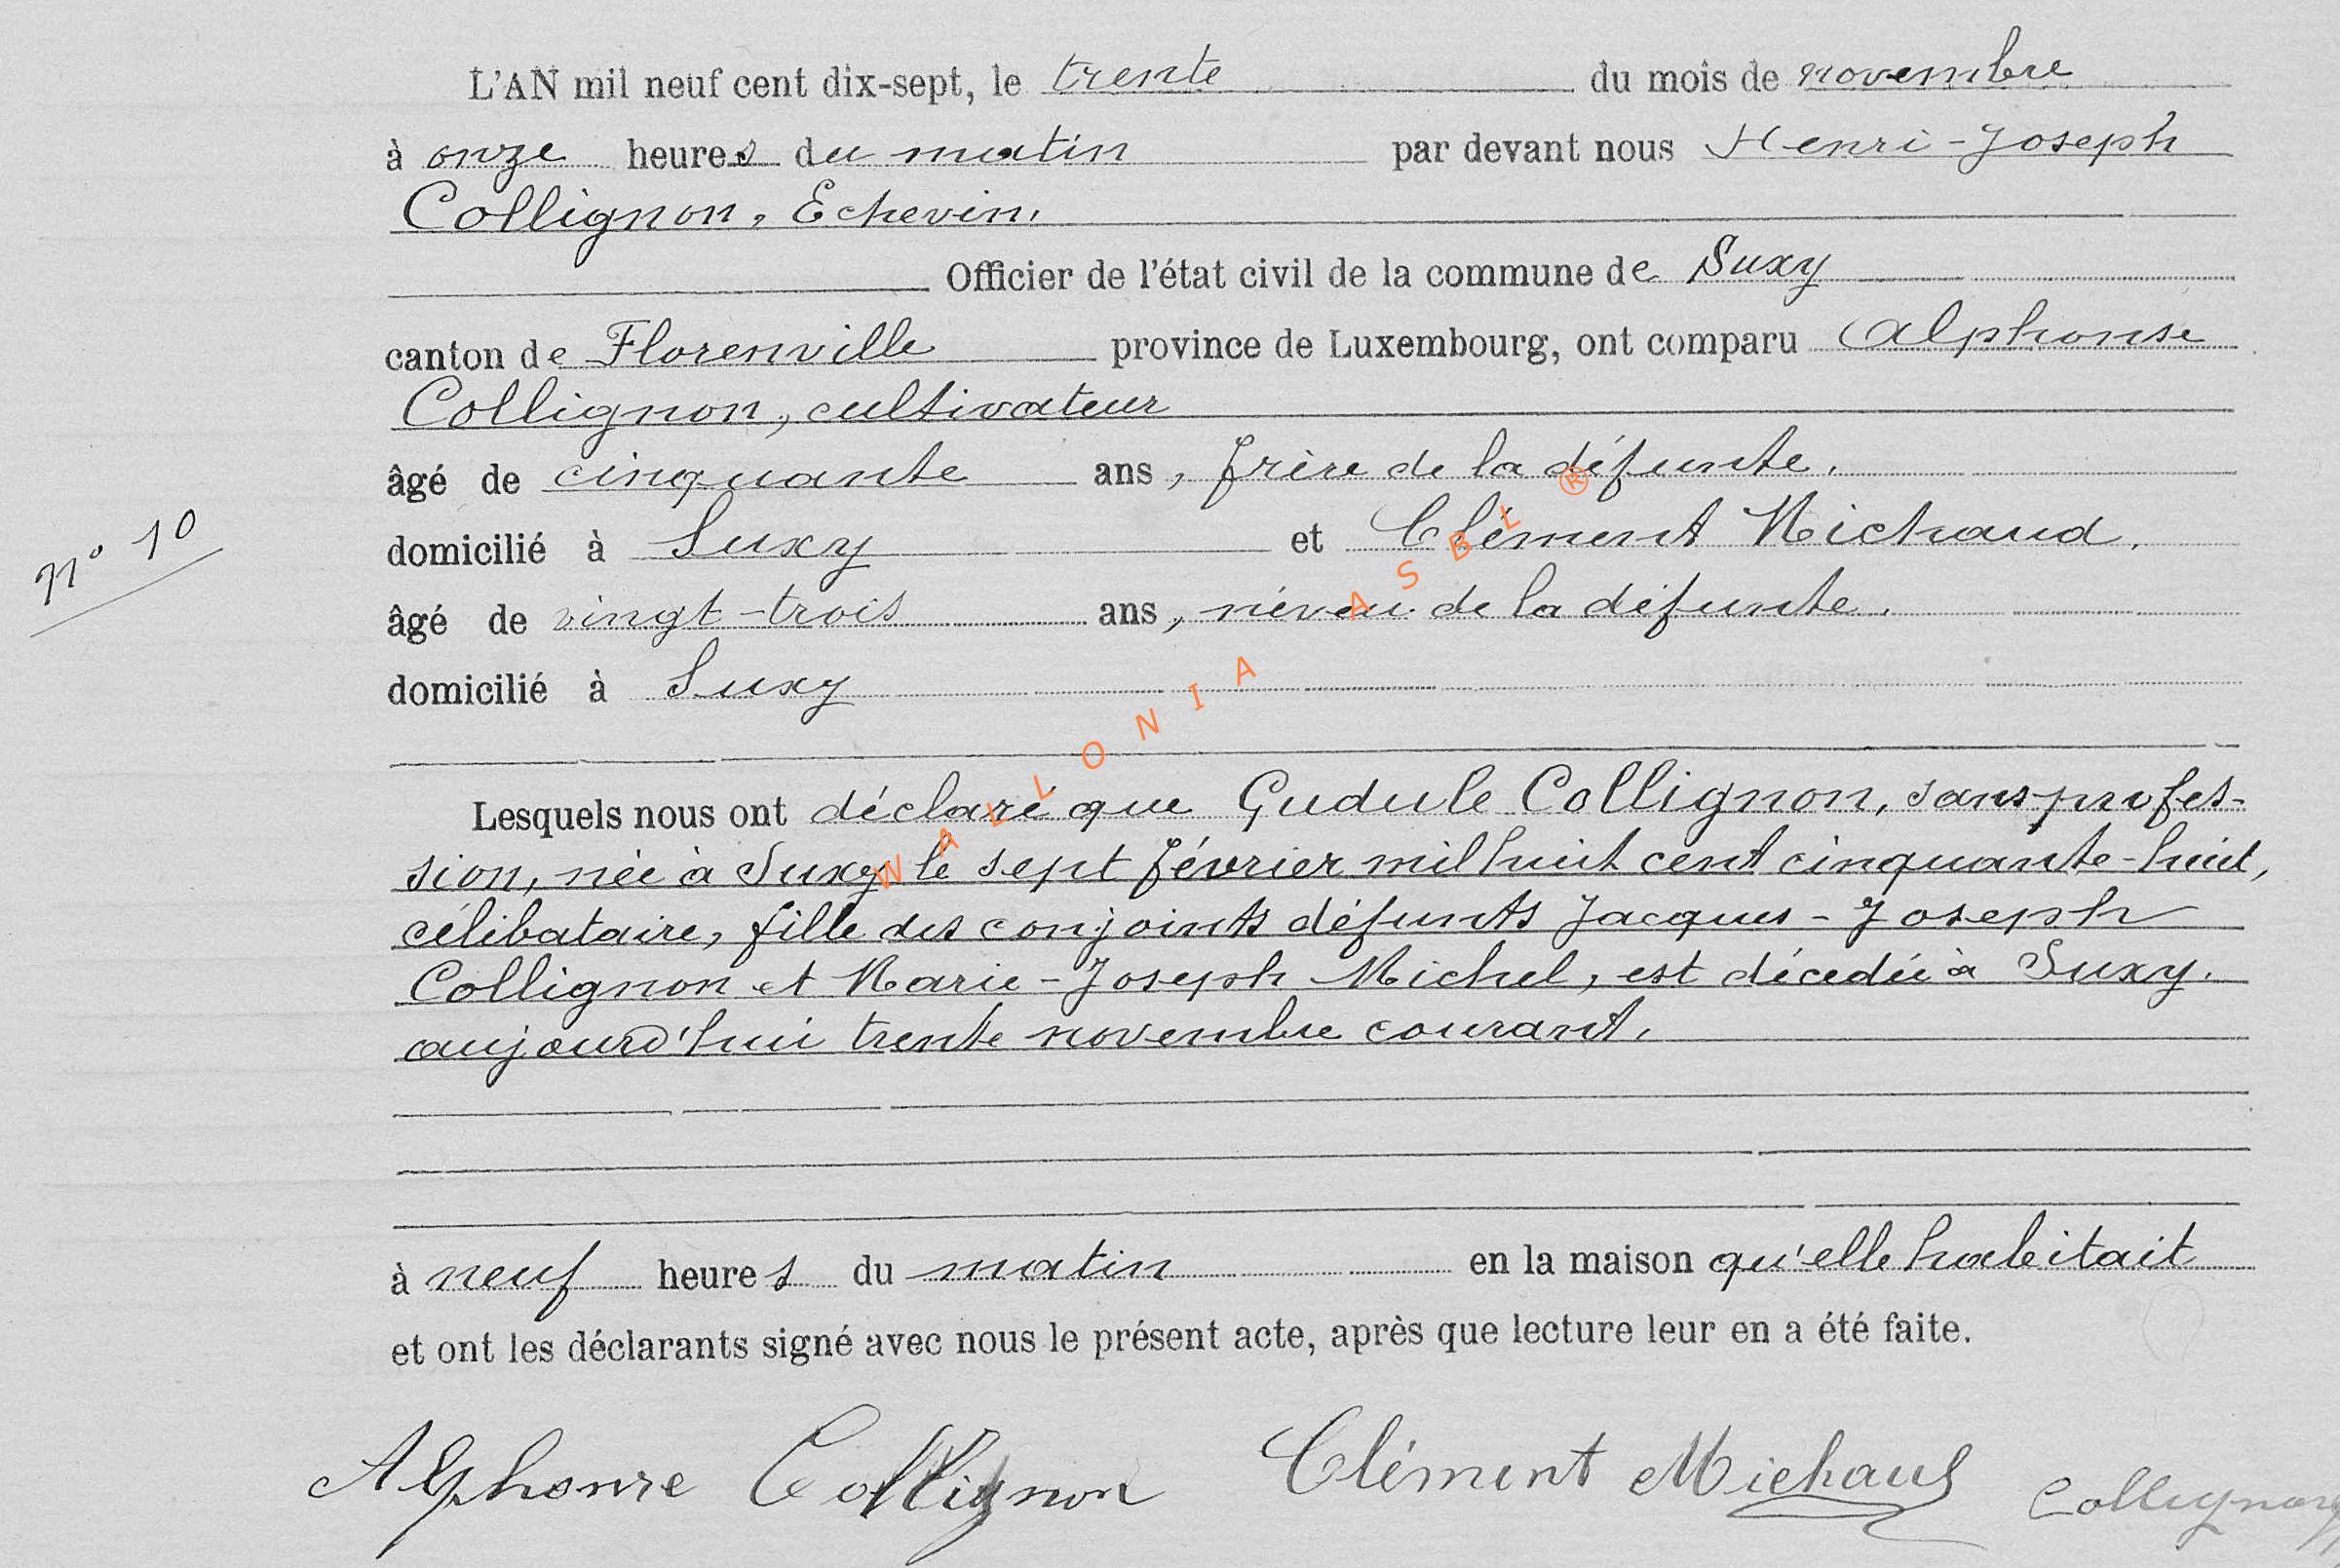 L'AN mil neuf cent dix-sept, le trente du mois de novembre
à onze heures du matin par devant nous Henri-Joseph
Collignon, Echevin,
Officier de l'état civil de la commune de Suxy
canton de Florenville province de Luxembourg, ont comparu Alphonse
Collignon, cultivateur
âgé de cinquante ans, frère de la défunte,
nº 10
domicilié à Suxy et Clément Michaud,
âgé de vingt-trois ans, néveu de la défunte,
domicilié à Suxy
Lesquels nous ont déclaré que Gudule Collignon, sans profes-
sion, née à Suxy le sept février mil huit cent cinquante-huit,
célibataire, fille des conjoints défunts Jacques-Joseph
Collignon et Marie-Joseph Michel, est décédée à Suxy,
aujourd'hui trente novembre courant,
à neuf heures du matin en la maison qu'elle habitait
et ont les déclarants signé avec nous le présent acte, après que lecture leur en a été faite.
Alphonse Collignon Clément Michaud Collignon
WALLONIA ASBL ®